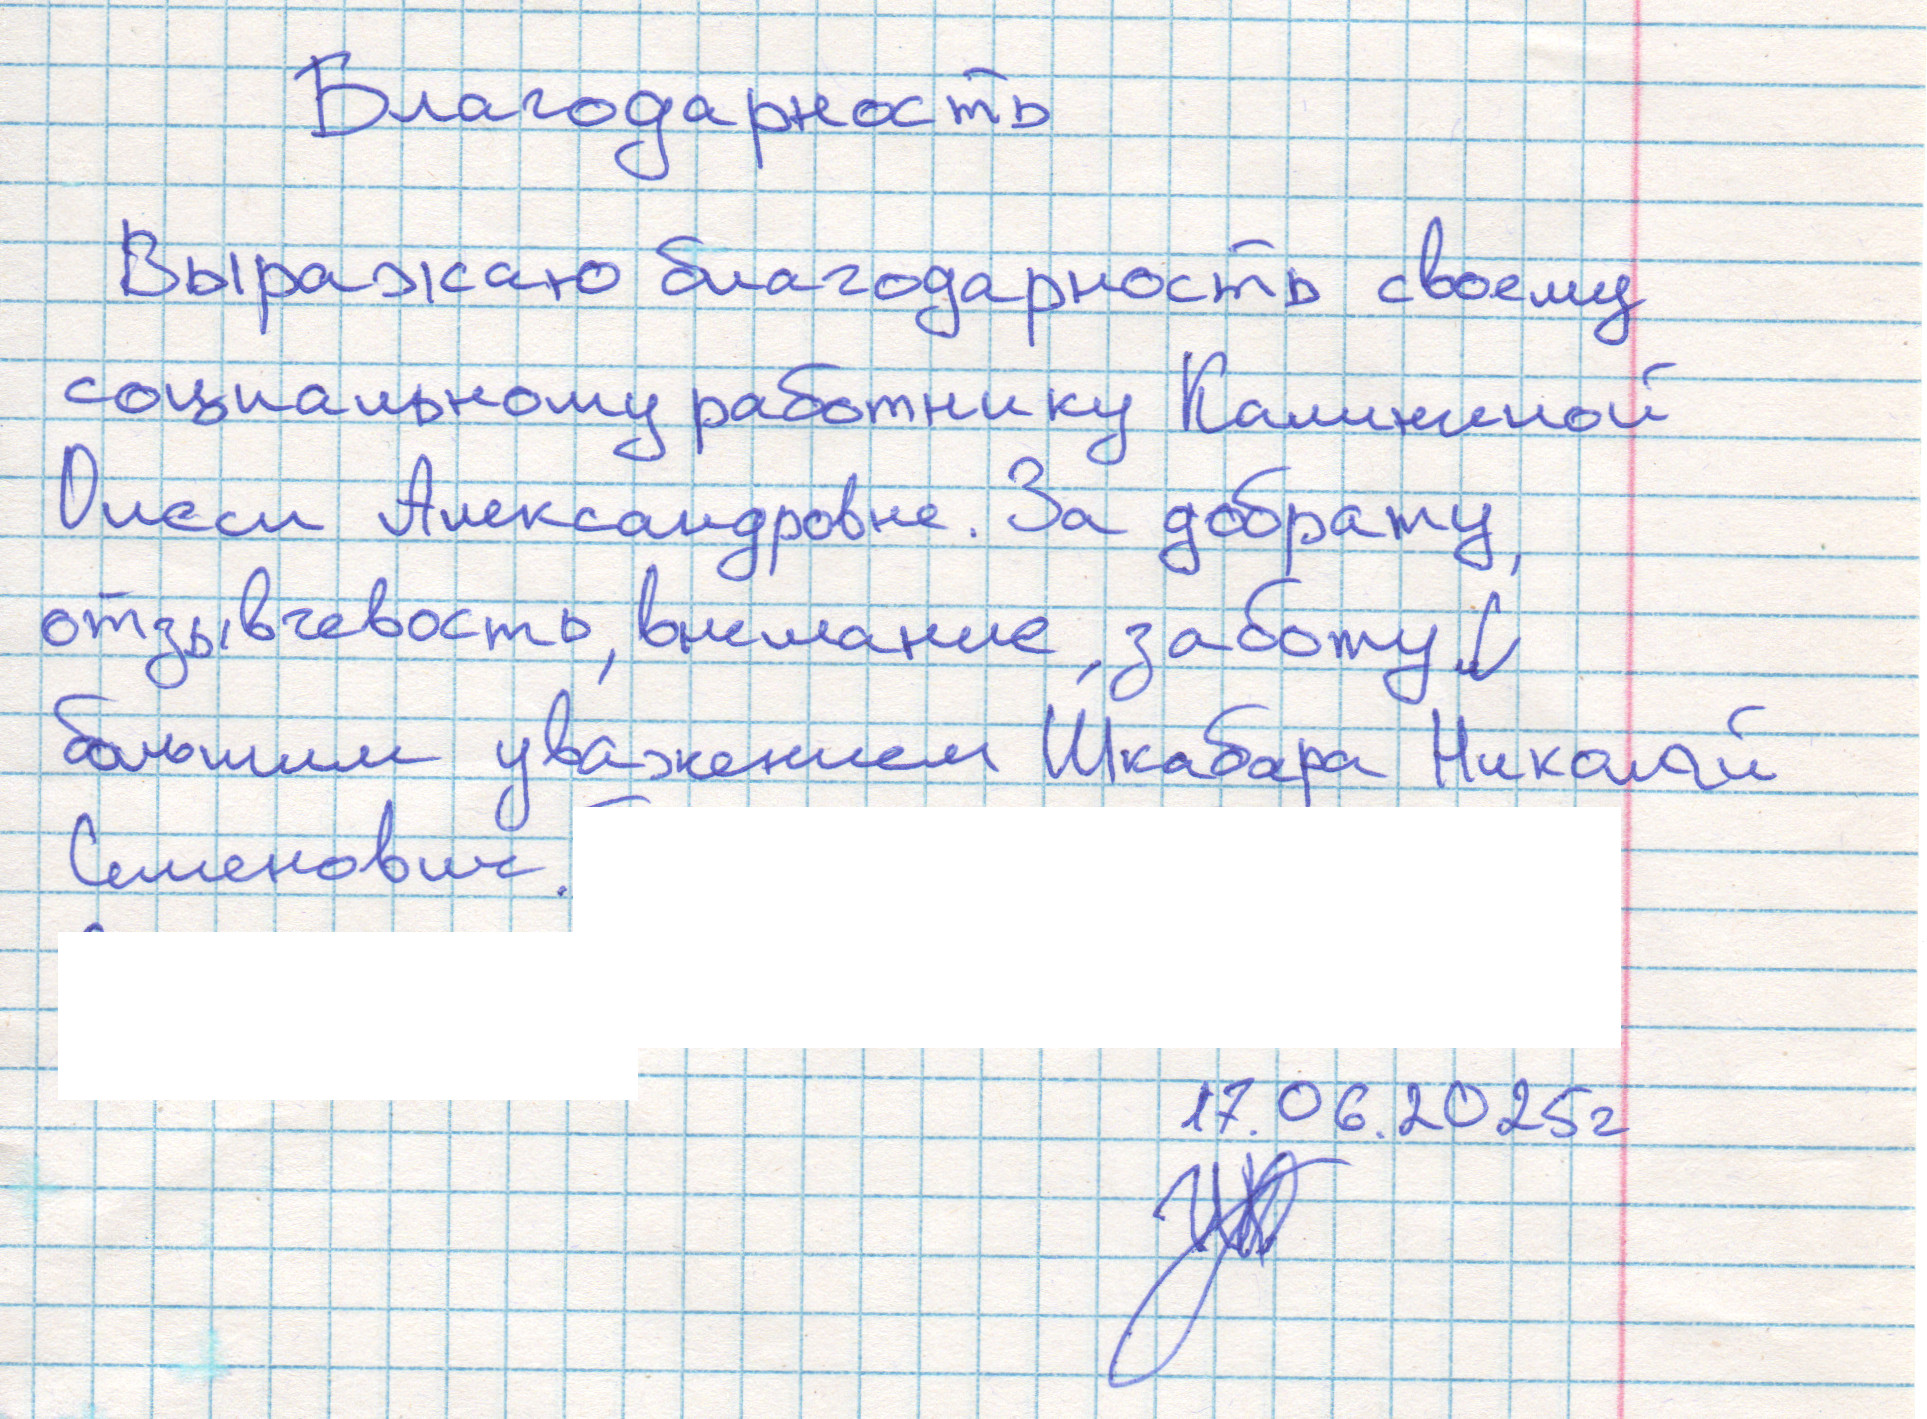 Благодарность
Выражаю благодарность своему
социальному работнику Калининой
Олеси Александровне. За доброту,
отзывчевость, внимание, заботу. С
большим уважением Шкабара Николай
Семенович.
17.06.2025г